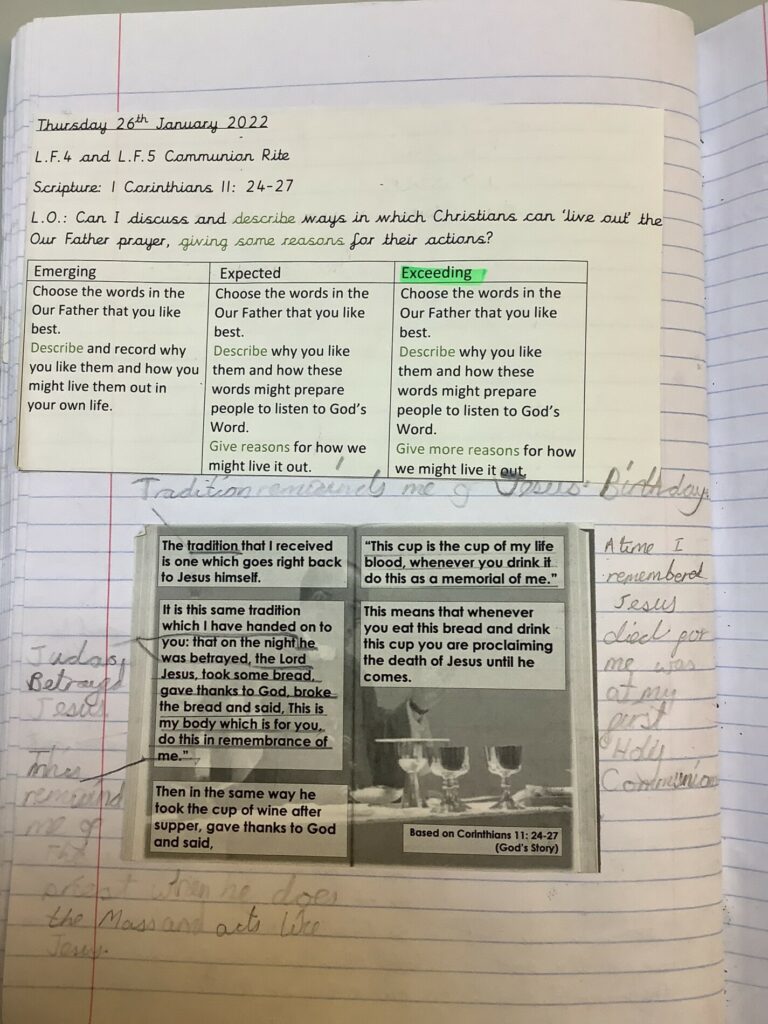 Thursday 26th January 2022
L.F.4 and L.F.5 Communion Rite
Scripture: 1 Corinthians 11: 24-27
L.O.: Can I discuss and describe ways in which Christians can 'live out' the
Our Father prayer, giving some reasons for their actions?
Emerging
Choose the words in the
Our Father that you like
best.
Describe and record why
you like them and how you
might live them out in
your own life.
Expected
Choose the words in the
Our Father that you like
best.
Describe why you like
them and how these
words might prepare
people to listen to God's
Word.
Give reasons for how we
might live it out.
Exceeding
Choose the words in the
Our Father that you like
best.
Describe why you like
them and how these
words might prepare
people to listen to God's
Word.
Give more reasons for how
we might live it out.
Tradition reminds me of Jesus' Birthday
The tradition that I received
is one which goes right back
to Jesus himself.
It is this same tradition
which I have handed on to
you: that on the night he
was betrayed, the Lord
Jesus, took some bread,
gave thanks to God, broke
the bread and said, This is
my body which is for you,
do this in remembrance of
me."
Then in the same way he
took the cup of wine after
supper, gave thanks to God
and said,
"This cup is the cup of my life
blood, whenever you drink it
do this as a memorial of me."
This means that whenever
you eat this bread and drink
this cup you are proclaiming
the death of Jesus until he
comes.
Based on Corinthians 11: 24-27
(God's Story)
Judas
Betrays
Jesus
This
remind
me of
the
priest when he does
the Mass and acts like
Jesus.
A time I
remembered
Jesus
died for
me was
at my
first
Holy
Communion